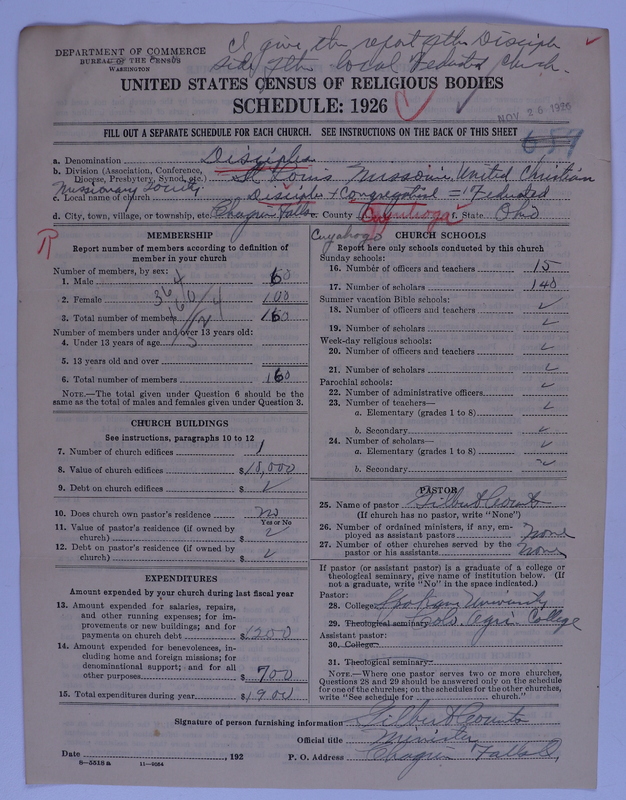 I give the report of the Disciple
side of the local Federated Church.
DEPARTMENT OF COMMERCE
BUREAU OF THE CENSUS
WASHINGTON
UNITED STATES CENSUS OF RELIGIOUS BODIES
SCHEDULE: 1926
NOV 26 1926
FILL OUT A SEPARATE SCHEDULE FOR EACH CHURCH. SEE INSTRUCTIONS ON THE BACK OF THIS SHEET
a. Denomination Disciples
b. Division (Association, Conference, Diocese, Presbytery, Synod, etc.) St Louis Missouri United Christian
Missionary Society
c. Local name of church Disciple & Congregational = Federated
d. City, town, village, or township, etc. Chagrin Falls e. County Cuyahoga f. State Ohio
Cuyahoga
R
MEMBERSHIP
Report number of members according to definition of
member in your church
Number of members, by sex:
1. Male 60
2. Female 100
3. Total number of members 160
Number of members under and over 13 years old:
4. Under 13 years of age
5. 13 years old and over
6. Total number of members 160
NOTE.—The total given under Question 6 should be
same as the total of males and females given under Question 3.
CHURCH BUILDINGS
See instructions, paragraphs 10 to 12
7. Number of church edifices 1
8. Value of church edifices $18,000
9. Debt on church edifices $ ✓
10. Does church own pastor's residence no
Yes or No
11. Value of pastor's residence (if owned by
church) $ ✓
12. Debt on pastor's residence (if owned by
church) $ ✓
EXPENDITURES
Amount expended by your church during last fiscal year
13. Amount expended for salaries, repairs,
and other running expenses; for im-
provements or new buildings; and for
payments on church debt $1200
14. Amount expended for benevolences, in-
cluding home and foreign missions; for
denominational support; and for all
other purposes $700
15. Total expenditures during year $1900
CHURCH SCHOOLS
Report here only schools conducted by this church
Sunday schools:
16. Number of officers and teachers 15
17. Number of scholars 140
Summer vacation Bible schools:
18. Number of officers and teachers ✓
19. Number of scholars ✓
Week-day religious schools:
20. Number of officers and teachers ✓
21. Number of scholars ✓
Parochial schools:
22. Number of administrative officers ✓
23. Number of teachers—
a. Elementary (grades 1 to 8) ✓
b. Secondary ✓
24. Number of scholars—
a. Elementary (grades 1 to 8) ✓
b. Secondary ✓
PASTOR
25. Name of pastor Gilbert Counts
(If church has no pastor, write "None")
26. Number of ordained ministers, if any, em-
ployed as assistant pastors none
27. Number of other churches served by the
pastor or his assistants none
If pastor (or assistant pastor) is a graduate of a college or
theological seminary, give name of institution below. (If
not a graduate, write "No" in the space indicated.)
Pastor:
28. College Spokane University
29. Theological seminary Agri. College
Assistant pastor:
30. College
31. Theological seminary
NOTE.—Where one pastor serves two or more churches,
Questions 28 and 29 should be answered only on the schedule
for one of the churches; on the schedules for the other churches,
write "See schedule for church."
Signature of person furnishing information Gilbert Counts
Official title Minister
Date , 192 P. O. Address Chagrin Falls O.
8—5518a 11—9064